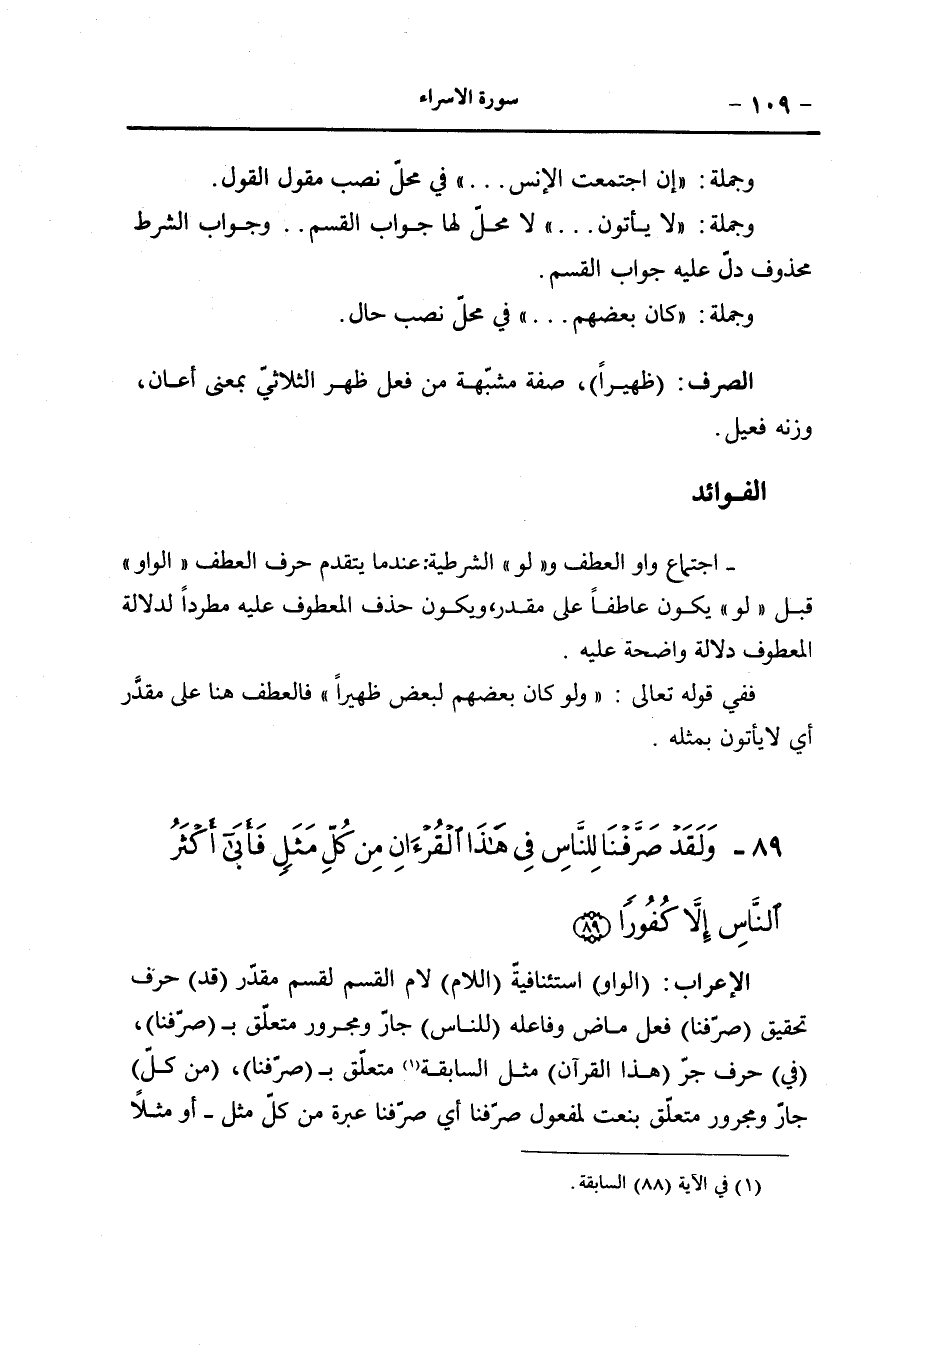 - ١٠٩ - سورة الاسراء
وجملة: «إن اجتمعت الإنس...» في محلّ نصب مقول القول.
وجملة: «لا يأتون...» لا محلّ لها جواب القسم.. وجواب الشرط
محذوف دلّ عليه جواب القسم.
وجملة: «كان بعضهم...» في محلّ نصب حال.
الصرف: (ظهيراً)، صفة مشبّهة من فعل ظهر الثلاثيّ بمعنى أعان،
وزنه فعيل.
الفوائد
ـ اجتماع واو العطف و« لو» الشرطية: عندما يتقدم حرف العطف « الواو»
قبل « لو» يكون عاطفاً على مقدر، ويكون حذف المعطوف عليه مطرداً لدلالة
المعطوف دلالة واضحة عليه .
ففي قوله تعالى : « ولو كان بعضهم لبعض ظهيراً» فالعطف هنا على مقدَّر
أي لايأتون بمثله .
٨٩ - وَلَقَدْ صَرَّفْنَا لِلنَّاسِ فِى هَٰذَا ٱلْقُرْءَانِ مِن كُلِّ مَثَلٍ فَأَبَىٰٓ أَكْثَرُ
ٱلنَّاسِ إِلَّا كُفُورًا ٨٩
الإعراب: (الواو) استئنافيةً (اللام) لام القسم لقسم مقدّر (قد) حرف
تحقيق (صرّفنا) فعل ماض وفاعله (للناس) جارّ ومجرور متعلّق بـ (صرّفنا)،
(في) حرف جرّ (هذا القرآن) مثل السابقة(١) متعلّق بـ (صرّفنا)، (من كلّ)
جارّ ومجرور متعلّق بنعت لمفعول صرّفنا أي صرّفنا عبرة من كلّ مثل ـ أو مثلاً
(١) في الآية (٨٨) السابقة.